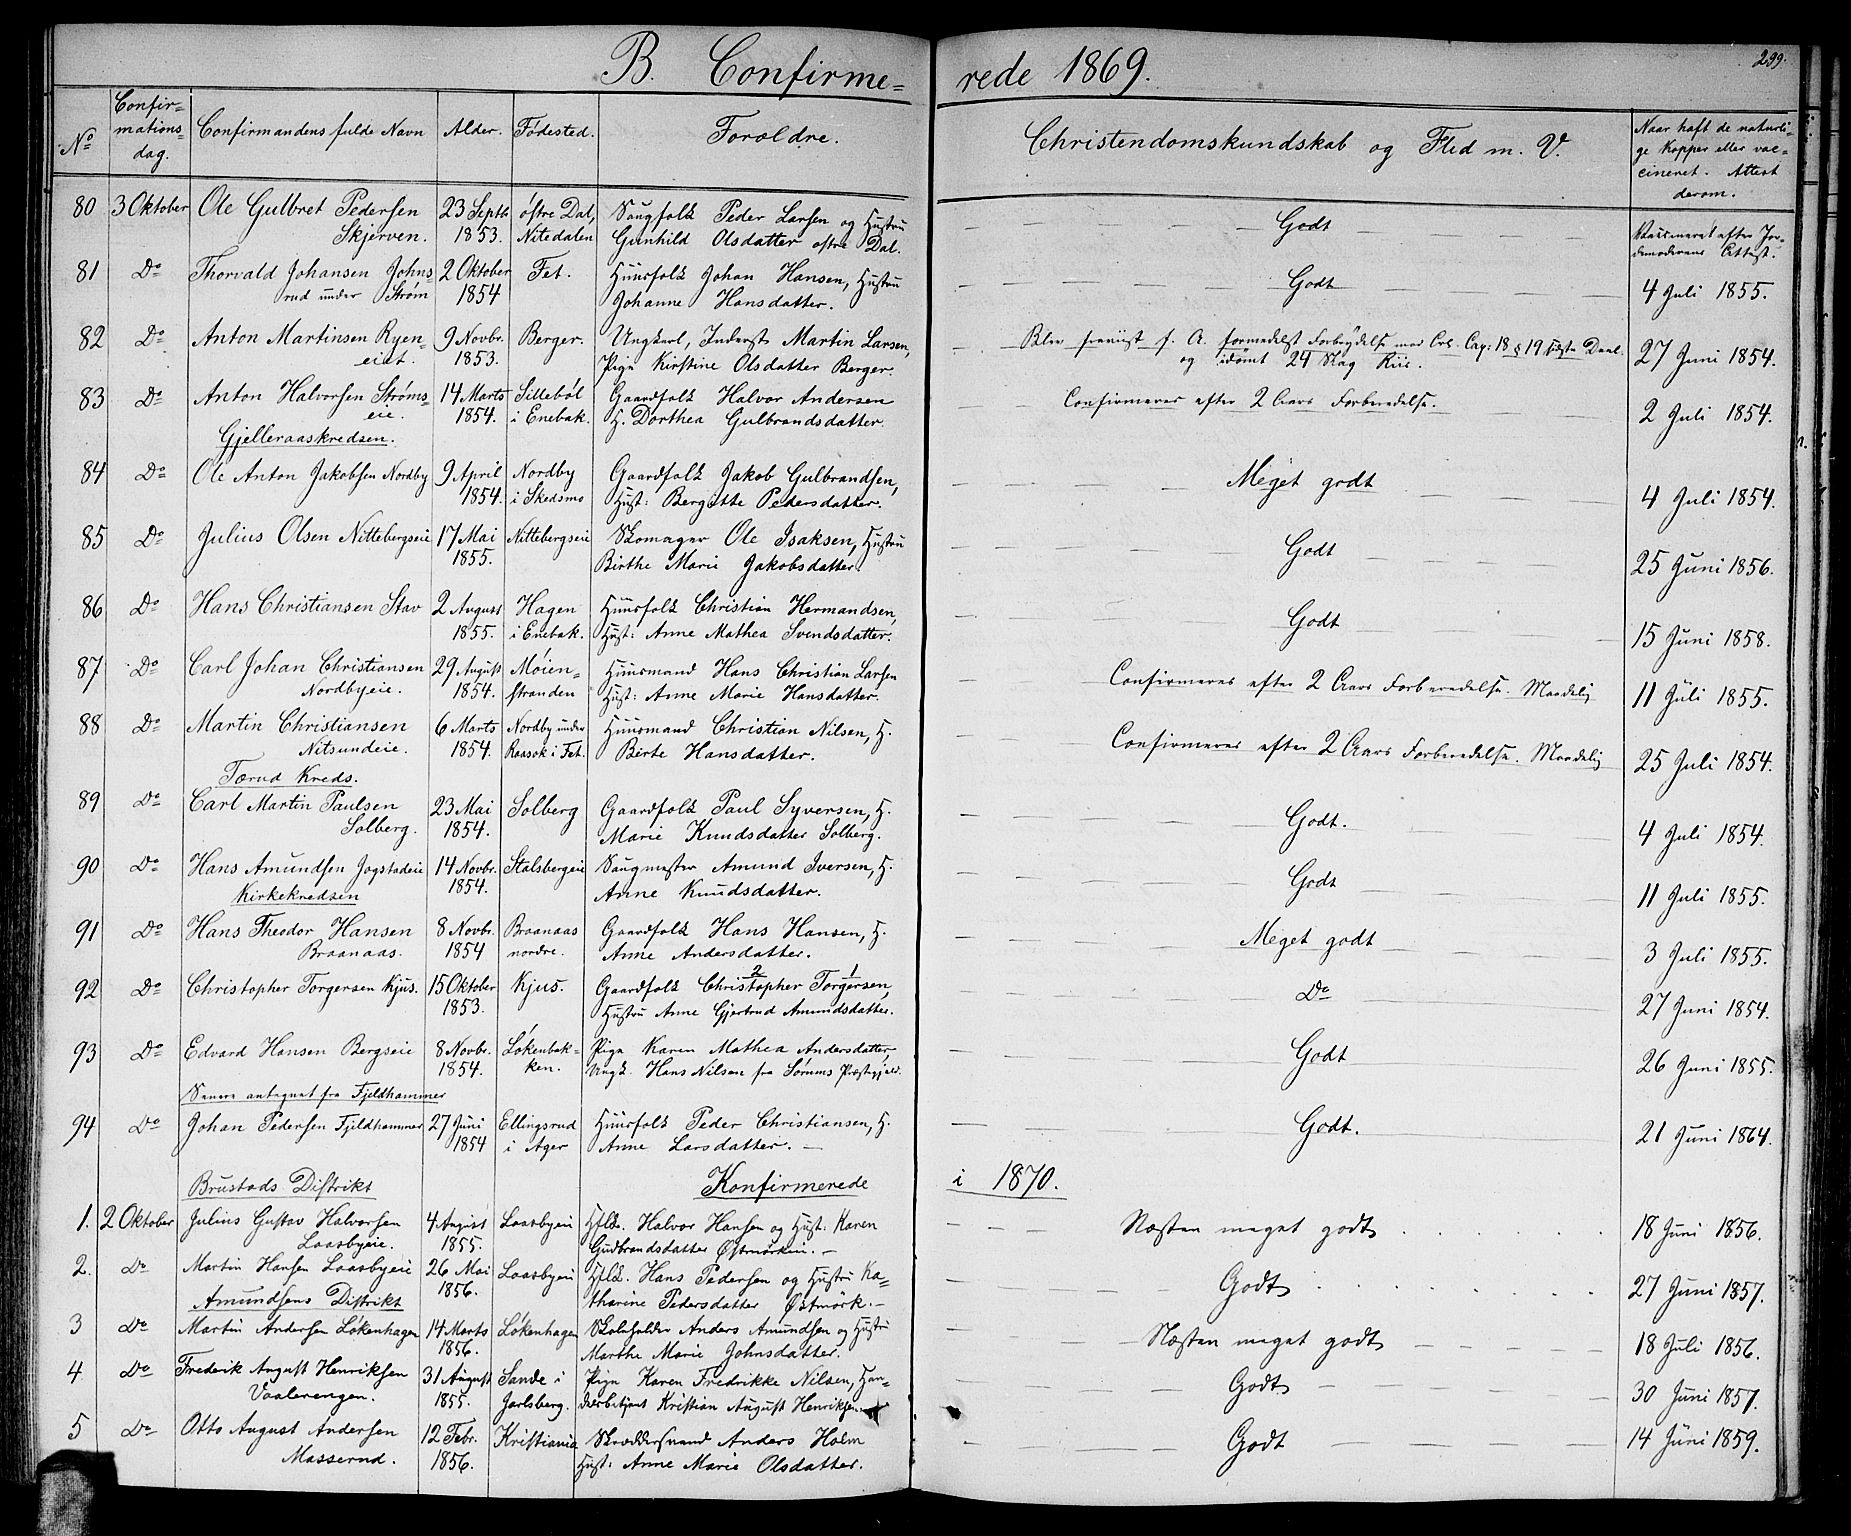 299.
B. Confirme- rede 1869.
No
Confir-
mations-
dag.
Confirmandens fulde Navn
Alder.
Fødested.
Foroldre.
Christendomskundskab og Flid m. V.
Naar haft de naturli-
ge Kopper eller vac-
cineret. Attest
derom.
80 3 Oktober Ole Gulbret Pedersen 23 Septb. østre Dal, Saugfolk Peder Larsen og Hustru Godt Vaccineret efter Jor-
Skjerven. 1853. Nitedalen Gunhild Olsdatter østre Dal. demoderens Attest.
81 Do Thorvald Johansen Johns- 2 Oktober Fet. Huusfolk Johan Hansen, Hustru Godt 4 Juli 1855.
rud under Strøm 1854 Johanne Hansdatter.
82 Do Anton Martinsen Ryen- 9 Novbr. Berger. Ungkarl, Inderst Martin Larsen, Blev f. A. formedelst Forbrydelse mod Crl. Cap: 18 § 19 Deel. 27 Juni 1854.
eiet. 1853. Pige Kirstine Olsdatter Berger. og idømt 24 Slag Riis.
83 Do Anton Halvorsen Strøms- 14 Marts Sillebøl Gaardfolk Halvor Andersen Confirmeres efter 2 Aars Forberedelse. 2 Juli 1854.
eie. 1854. i Enebak. H. Dorthea Gulbrandsdatter.
Gjelleraaskredsen.
84 Do Ole Anton Jakobsen Nordby 9 April Nordby Gaardfolk Jakob Gulbrandsen, Meget godt 4 Juli 1854.
1854. i Skedsmo Hust: Bergitte Pedersdatter.
85 Do Julius Olsen Nittebergseie 17 Mai Nittebergseie Skomager Ole Isaksen, Hustru Godt 25 Juni 1856.
1855. Birthe Marie Jakobsdatter.
86 Do Hans Christiansen Stav 2 August Hagen Huusfolk Christian Hermandsen, Godt 15 Juni 1858.
1855. i Enebak. Hust: Anne Mathea Svendsdatter.
87 Do Carl Johan Christiansen 29 August Møien- Huusmand Hans Christian Larsen Confirmeres efter 2 Aars Forberedelse. Maadelig 11 Juli 1855.
Nordbyeie. 1854. stranden Hust: Anne Marie Hansdatter.
88 Do Martin Christiansen 6 Marts Nordby under Huusmand Christian Nilsen, H. Confirmeres efter 2 Aars Forberedelse. Maadelig 25 Juli 1854.
Nitsundeie. 1854. Raasok i Fet. Birte Hansdatter.
Tærud Kreds.
89 Do Carl Martin Paulsen 23 Mai Solberg Gaardfolk Paul Syversen, H. Godt. 4 Juli 1854.
Solberg. 1854. Marie Knudsdatter Solberg.
90 Do Hans Amundsen Jogstadeie 14 Novbr. Stalsbergeie Saugmester Amund Iversen, H. Godt 11 Juli 1855.
Kirkekredsen 1854. Anne Knudsdatter.
91 Do Hans Theodor Hansen 8 Novbr. Braanaas Gaardfolk Hans Hansen, H. Meget godt 3 Juli 1855.
Braanaas. 1854 nordre. Anne Andersdatter.
92 Do Christopher Torgersen Kjus. 15 Oktober Kjus. Gaardfolk Christopher 2 Torgersen 1, Do 27 Juni 1854.
1853. Hustru Anne Gjertrud Amundsdatter.
93 Do Edvard Hansen Bergseie 8 Novbr. Løkenbak- Pige Karen Mathea Andersdatter, Godt 26 Juni 1855.
1854. ken. Ungk. Hans Nilsen fra Sørums Præstegjeld.
Senere antegnet fra Fjeldhammer
94 Do Johan Pedersen Fjeldhammer 27 Juni Ellingsrud Huusfolk Peder Christiansen, H. Godt. 21 Juni 1864.
1854 i Ager Anne Larsdatter.
Brustads Distrikt Konfirmerede i 1870.
1. 2 Oktober Julius Gustav Halvorsen 4 August Laasbyeie Hflk. Halvor Hansen og Hust: Karen Næsten meget godt 18 Juni 1856.
Laasbyeie. 1855. Gudbrandsdatter Østmørken.
2. Do Martin Hansen Laasbyeie 26 Mai Laasbyeie Hflk. Hans Pedersen og Hustru Ka- Godt 27 Juni 1857.
Amundsens Distrikt 1856. tharine Pedersdatter Østmørk.
3 Do Martin Andersen Løkenhagen 14 Marts Løkenhagen Skoleholder Anders Amundsen og Hustru Næsten meget godt 18 Juli 1856.
1856. Marthe Marie Johnsdatter.
4 Do Frederik August Henriksen 31 August Sande i Pige Karen Fredrikke Nilsen, Han- Godt 30 Juni 1857.
Vaalerengen. 1855. Jarlsberg. delsbetjent Kristian August Henriksen.
5 Do Otto August Andersen 12 Febr. Kristiania Skræddersvend Anders Holm Godt 14 Juni 1859.
Masserud. 1856. Hust: Anne Marie Olsdatter.